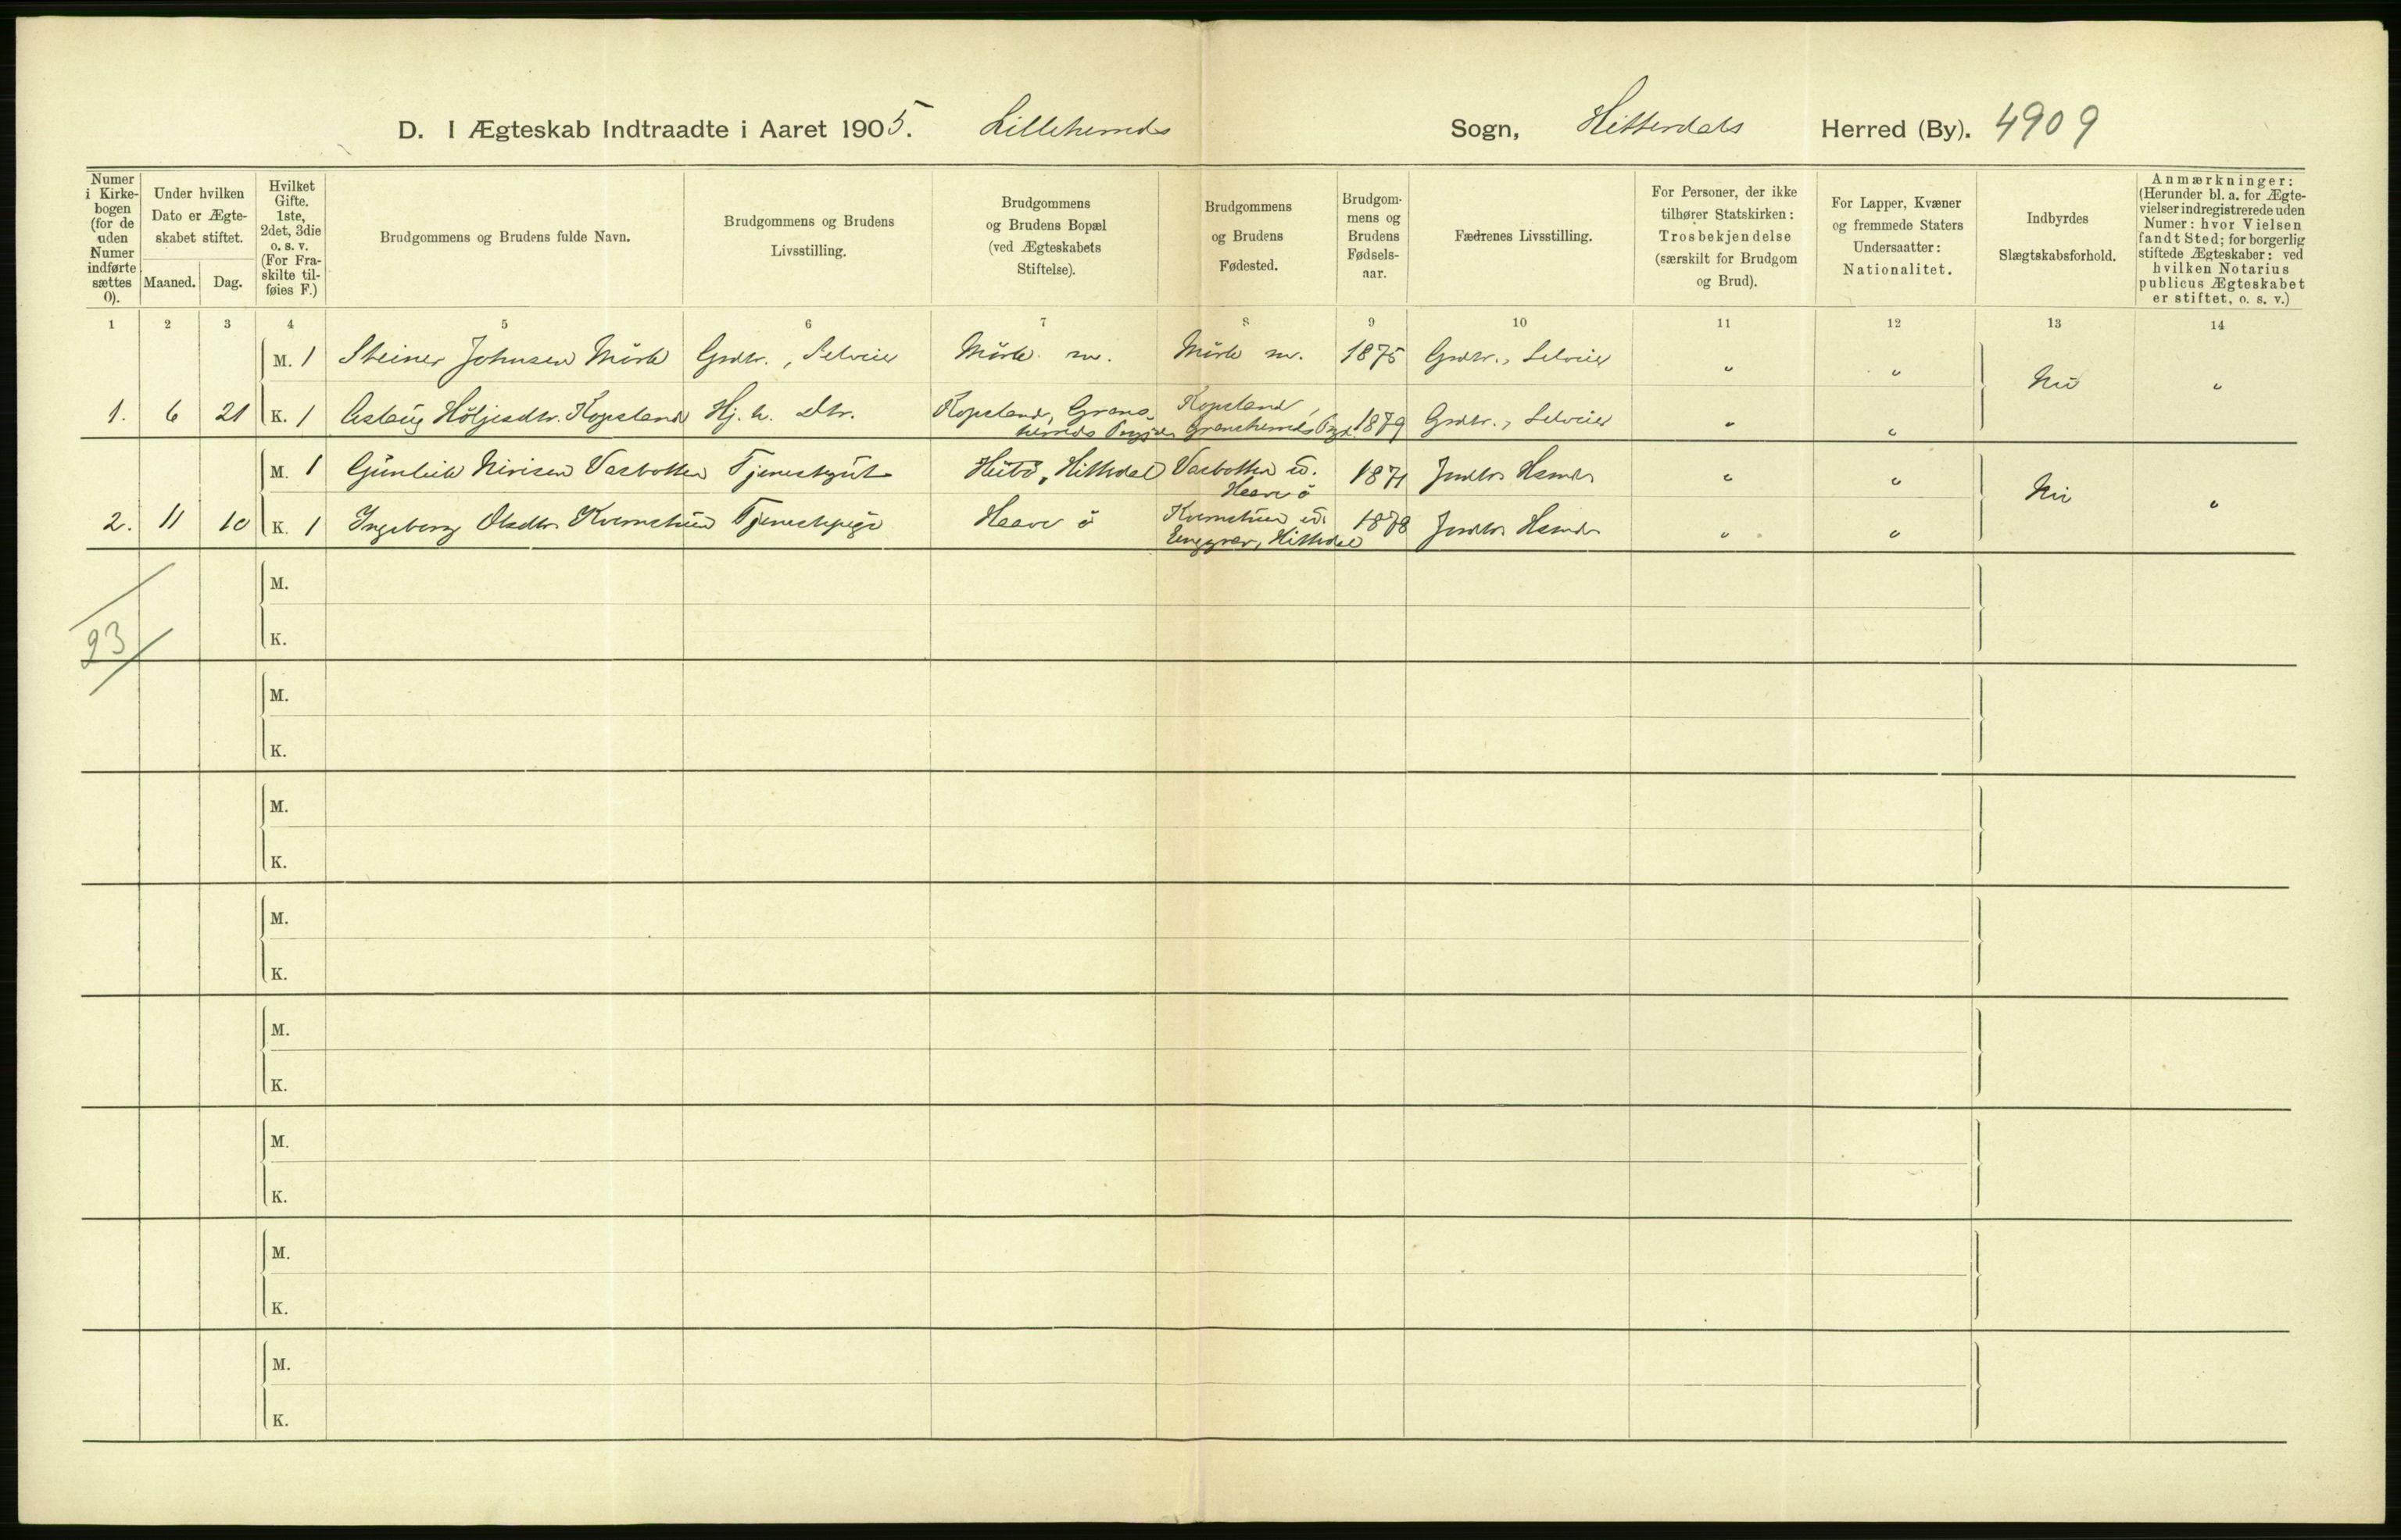 D. I Ægteskab Indtraadte i Aaret 1905. Lilleherreds Sogn, Hitterdals Herred (By). 4909
Numer i Kirkebogen (for de uden Numer indførte sættes 0).
Under hvilken Dato er Ægteskabet stiftet.
Maaned. Dag.
Hvilket Gifte. 1ste, 2det, 3die o. s. v. (For Fraskilte tilføies F.)
Brudgommens og Brudens fulde Navn.
Brudgommens og Brudens Livsstilling.
Brudgommens og Brudens Bopæl (ved Ægteskabets Stiftelse).
Brudgommens og Brudens Fødested.
Brudgommens og Brudens Fødselsaar.
Fædrenes Livsstilling.
For Personer, der ikke tilhører Statskirken: Trosbekjendelse (særskilt for Brudgom og Brud).
For Lapper, Kvæner og fremmede Staters Undersaatter: Nationalitet.
Indbyrdes Slægtskabsforhold.
Anmærkninger: (Herunder bl. a. for Ægtevielser indregistrerede uden Numer: hvor Vielsen fandt Sted; for borgerlig stiftede Ægteskaber: ved hvilken Notarius publicus Ægteskabet er stiftet, o. s. v.)
1 2 3 4 5 6 7 8 9 10 11 12 13 14
M. 1 Steiner Johnsen Mörk Grdbr., Selveier Mörk m. Mörk m. 1875 Grdbr., Selveier " "
1. 6 21 K. 1 Aslaug Höljesdtr. Kopsland Hj. h. Dtr. Kopsland, Gransherreds Kopsland, Gransherreds 1879 Grdbr., Selveier " " "
M. 1 Gunleik Nirisen Vasbotten Tjenestgut Heibö, Hitterdal Vasbotten u. Haave ö 1871 " "
2. 11 10 K. 1 Ingeborg Olsdtr. Tjenestepige Haave ö Hitterdal 1878 " " "
23
M.
K.
M.
K.
M.
K.
M.
K.
M.
K.
M.
K.
M.
K.
M.
K.